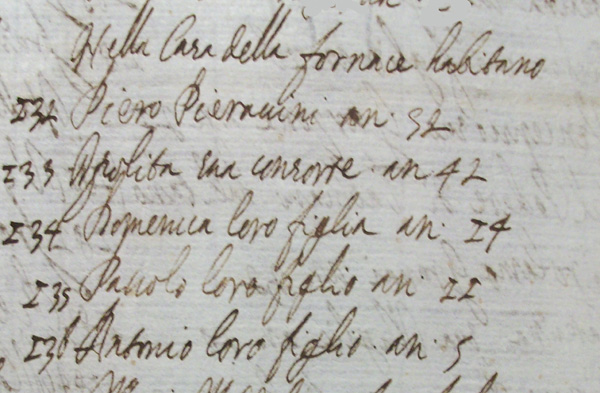 Nella Casa della fornace habitano
132 Piero Pieraccini an. 52
133 Ipolita sua consorte an 42
134 Domenica loro figlia an. 14
135 Paulo loro figlio an. 11
136 Antonio loro figlio. an. 5